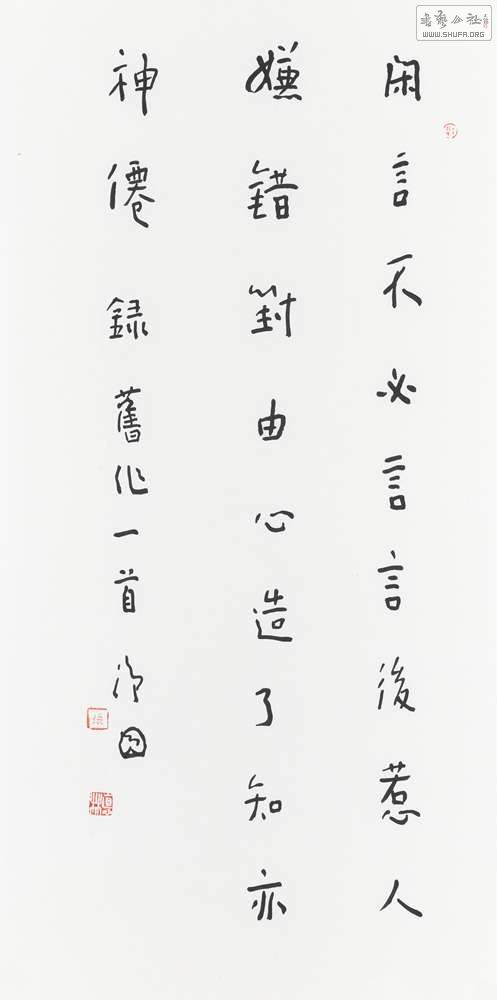 閑言不必言言後惹人
嫌錯對由心造了知亦
神僊錄舊作一首
書藝公社
WWW.SHUFA.ORG